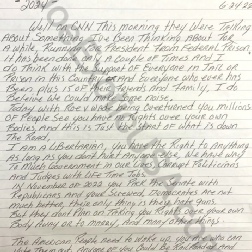 2024 6-24-22
Watching CNN This morning they were Talking
About Something I've Been Thinking about For
A while, Running For President From Federal Prison,
it has been done A couple of Times And I
do Think with the support of Everyone in Jail or
Prison in this Country or And Everyone who ever has
Been plus is of their friends And Family, I do
Believe we could make some noise.
Today with Roe v Wade being Overturned you Millions
of People See you have no Rights over your own
Bodies, And this is Just the start of what is down
The Road.
I am A Libertarian, you have The Right to Anything
As long as you don't hurt Anyone else, We have way
To Much Government in our Lives, Corrupt Politicians
And Judges with Life Time Jobs.
in November of 2022 you Pack The Senate with
Republicans And your Screwed, Democrats Are not
much better, their only thing is they hate guns.
But they don't Plan on Taking your Rights over your own
Body Away or to marry, And many other things.
The American People need to wake up, you